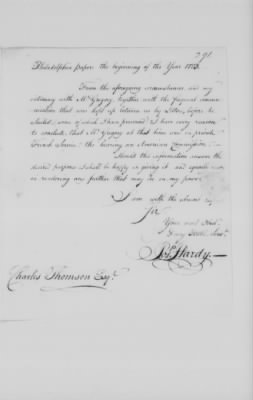 291
Philadelphia paper the beginning of the Year 1778.
From the foregoing circumstances and my
intimacy with Mr Gregory, together with the frequent commu-
nication that was kept up between us by Letter, before he
Sailed, some of which I have preserved, I have every reason
to conclude, that Mr Gregory at that time was in private
French Service, tho having an American Commission.
Should this information answer the
desired purpose I shall be happy in giving it, and equally so
in rendering any further that may be in my power.
I am with the
Sir
Your most
& very
Jos. Hardy
Charles Thomson Esqr.